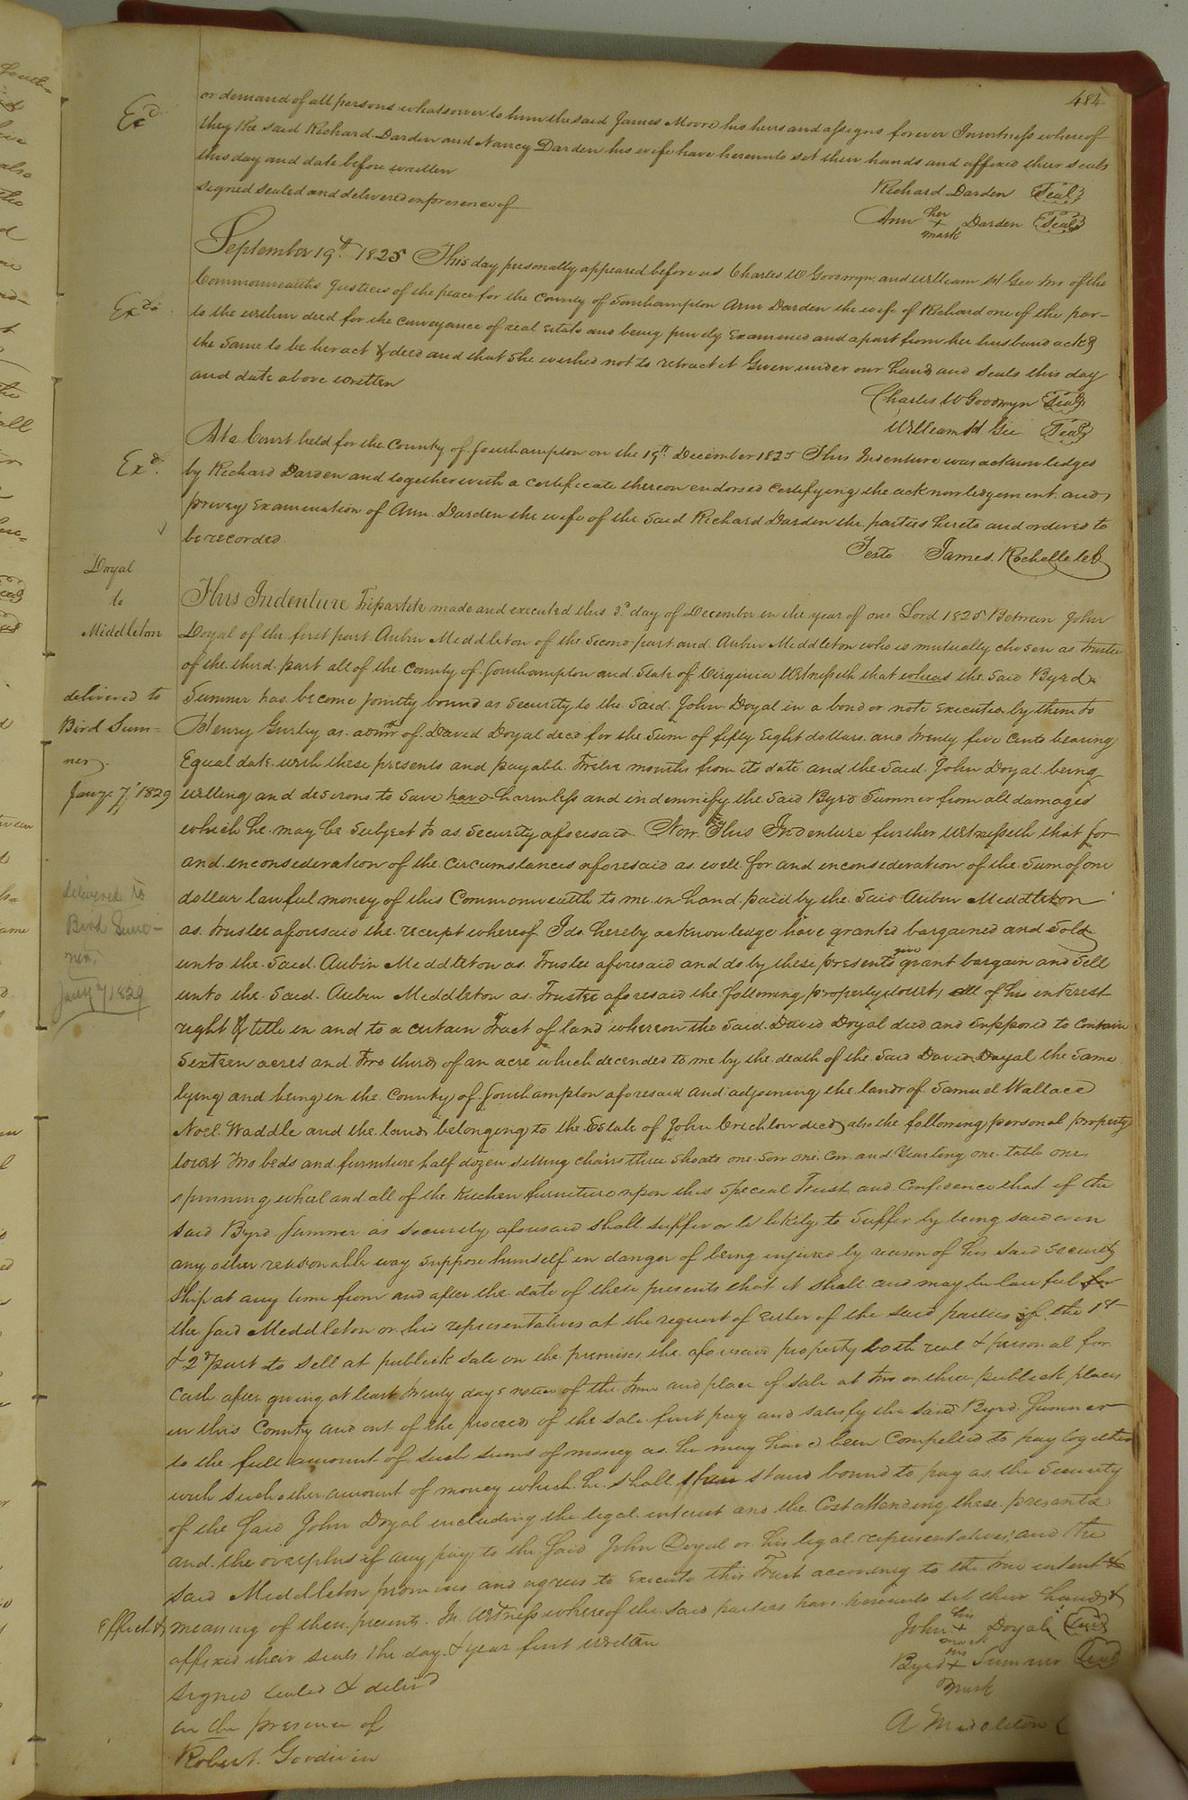 484
Exd
or demand of all persons whatsoever to him the said James Moore his heirs and assigns forever In witness whereof
they the said Richard Darden and Nancy Darden his wife have hereunto set their hands and affixed their seals
this day and date before written
Richard Darden Seal
signed sealed and delivered in presence of
Ann her + mark Darden Seal
September 19th 1825 This day personally appeared before us Charles W Goodwyn and William H Gee two of the
Commonwealths Justices of the peace for the County of Southampton Ann Darden the wife of Richard one of the par-
Exd
to the within deed for the conveyance of real estate and being privily Examined and apart from her husband ackd
the same to be her act & deed and that she wished not to retract it Given under our hands and seals this day
and date above written
Charles W Goodwyn Seal
William H Gee Seal
At a Court held for the County of Southampton on the 19th December 1825 This Indenture was acknowledged
Exd.
by Richard Darden and together with a certificate thereon endorsed certifying the acknowledgement and
privey Examination of Ann Darden the wife of the said Richard Darden the parties hereto and ordered to
be recorded
Teste James Rochelle
Doyal
to
Middleton
This Indenture Tripartite made and executed this 3d day of December in the year of our Lord 1825 Between John
Doyal of the first part Aubin Middleton of the second part and Aubin Middleton who is mutually chosen as Trustee
of the third part all of the County of Southampton and State of Virginia Witnesseth that whereas the said Byrd
delivered to
Bird Sum-
ner
Jany 7, 1829
Sumner has become jointly bound as security to the said John Doyal in a bond or note Executed by them to
Henry Gurley as admr of David Doyal decd for the Sum of fifty Eight dollars and twenty five Cents bearing
Equal date with these presents and payable Twelve months from its date and the said John Doyal being
willing and desirous to save have harmless and indemnify the said Byrd Sumner from all damages
which he may be subject to as security aforesaid Now This Indenture further witnesseth that for
and inconsideration of the circumstances aforesaid as well for and inconsideration of the sum of one
delivered to
Bird Sum-
ner.
Jany 7, 1829
dollar lawful money of this Commonwealth to me in hand paid by the said Aubin Middleton
as Trustee aforesaid the receipt whereof I do hereby acknowledge have granted bargained and sold
unto the said Aubin Middleton as Trustee aforesaid and do by these presents give grant bargain and sell
unto the said Aubin Middleton as Trustee aforesaid the following property towit, all of his interest
right & title in and to a certain Tract of land whereon the said David Doyal died and supposed to contain
Sixteen acres and two thirds of an acre which decended to me by the death of the said David Doyal the same
lying and being in the County of Southampton aforesaid and adjoining the lands of Samuel Wallace
Noel Waddle and the lands belonging to the Estate of John Crichlow decd also the following personal property
towit two beds and furniture half dozen sitting chairs three shoats one sow one cow and yearling one table one
spinning wheel and all of the kitchen furniture upon this special Trust and Confidence that if the
said Byrd Sumner as security aforesaid shall suffer or be likely to suffer by being sued or in
any other reasonable way suppose himself in danger of being injured by reason of his said security
ship at any time from and after the date of these presents that it shall and may be lawful for
the said Middleton or his representatives at the request of either of the said parties of the 1st
& 2d part to sell at publick sale on the premises the aforesaid property both real & personal for
Cash after giving at least twenty days notice of the time and place of sale at two or three publick places
in this County and out of the proceeds of the sale first pay and satisfy the said Byrd Sumner
to the full amount of such sums of money as he may have been Compelled to pay together
with such other amount of money which he shall then stand bound to pay as the security
of the said John Doyal including the legal interest and the Cost attending these presents
and the overplus if any pay to the said John Doyal or his legal representatives, and the
said Middleton promises and agrees to Execute this Trust according to the true intent &
Effect &
meaning of these presents. In Witness whereof the said parties have hereunto set their hands &
affixed their seals the day & year first written
John his + mark Doyal Seal
signed sealed & delivd
Byrd his + mark Sumner Seal
in the presence of
A Middleton
Robert Goodwin